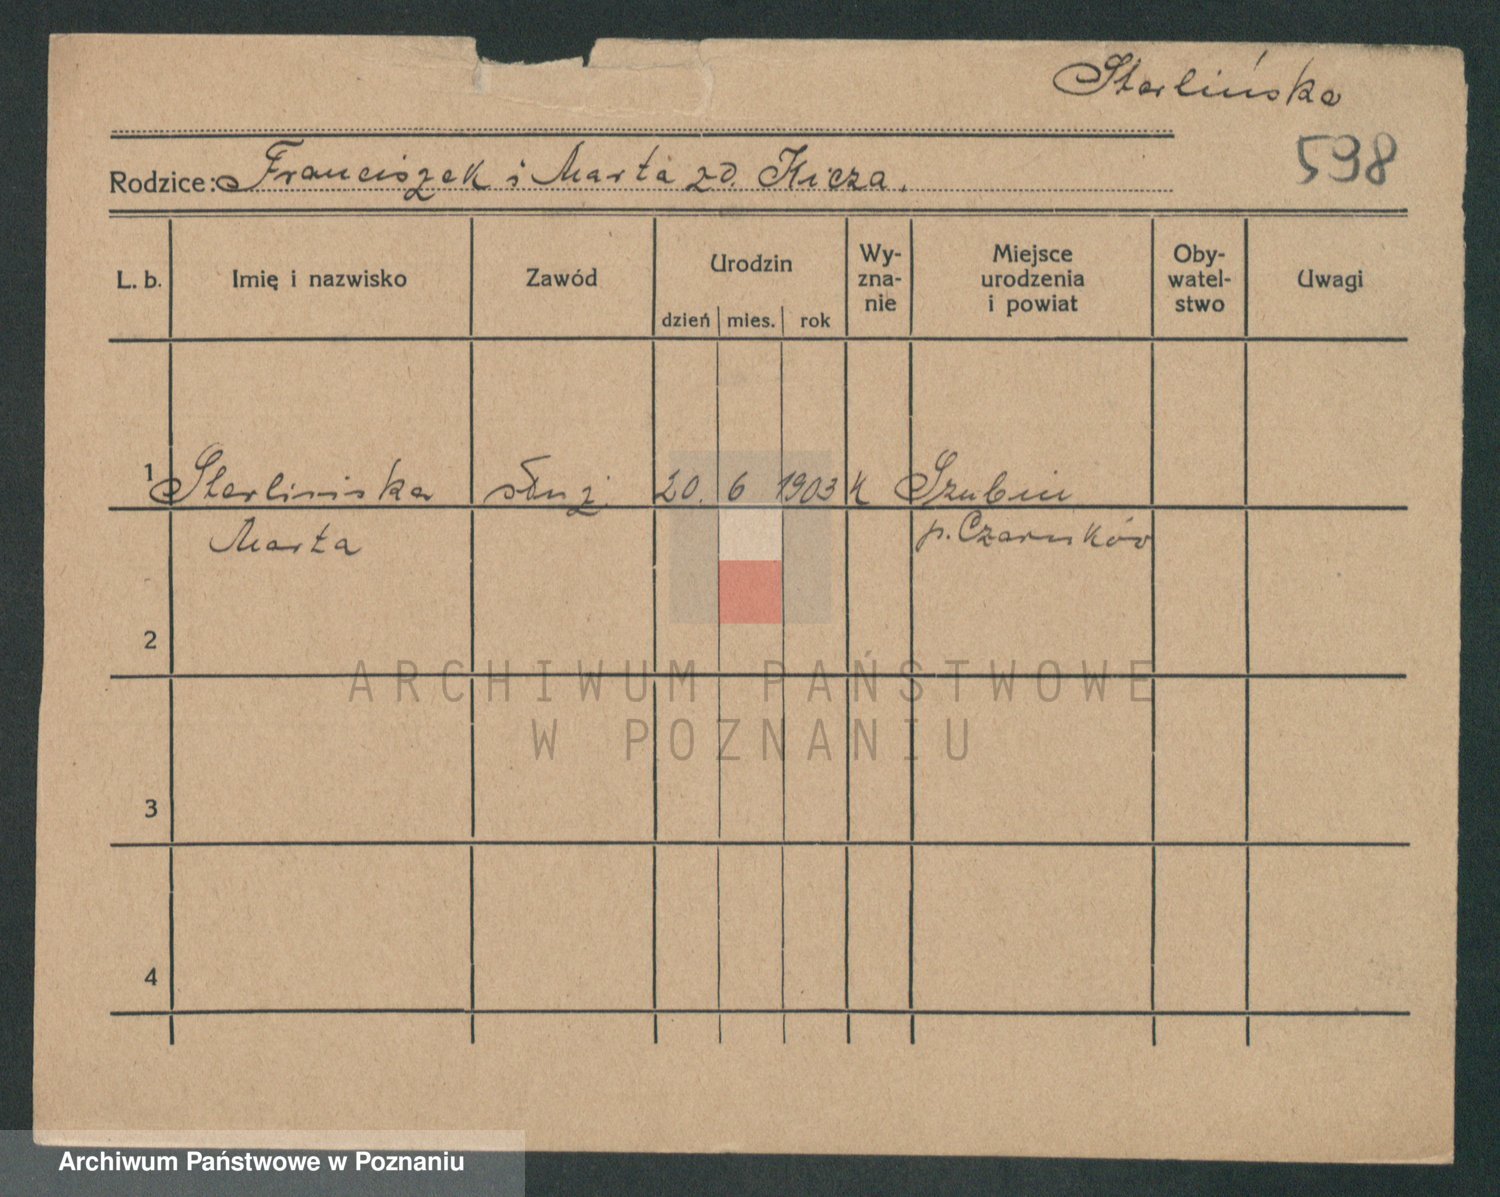 Sterlińska
598
Rodzice: Franciszek i Marta zd. Kicza.
L. b.
Imię i nazwisko
Zawód
Urodzin
dzień mies. rok
Wy-
zna-
nie
Miejsce
urodzenia
i powiat
Oby-
watel-
stwo
Uwagi
1 Sterlińska służ. 20. 6 1903 K Szubin
Marta p. Czarnków
2
3
4
ARCHIWUM PAŃSTWOWE
W POZNANIU
Archiwum Państwowe w Poznaniu